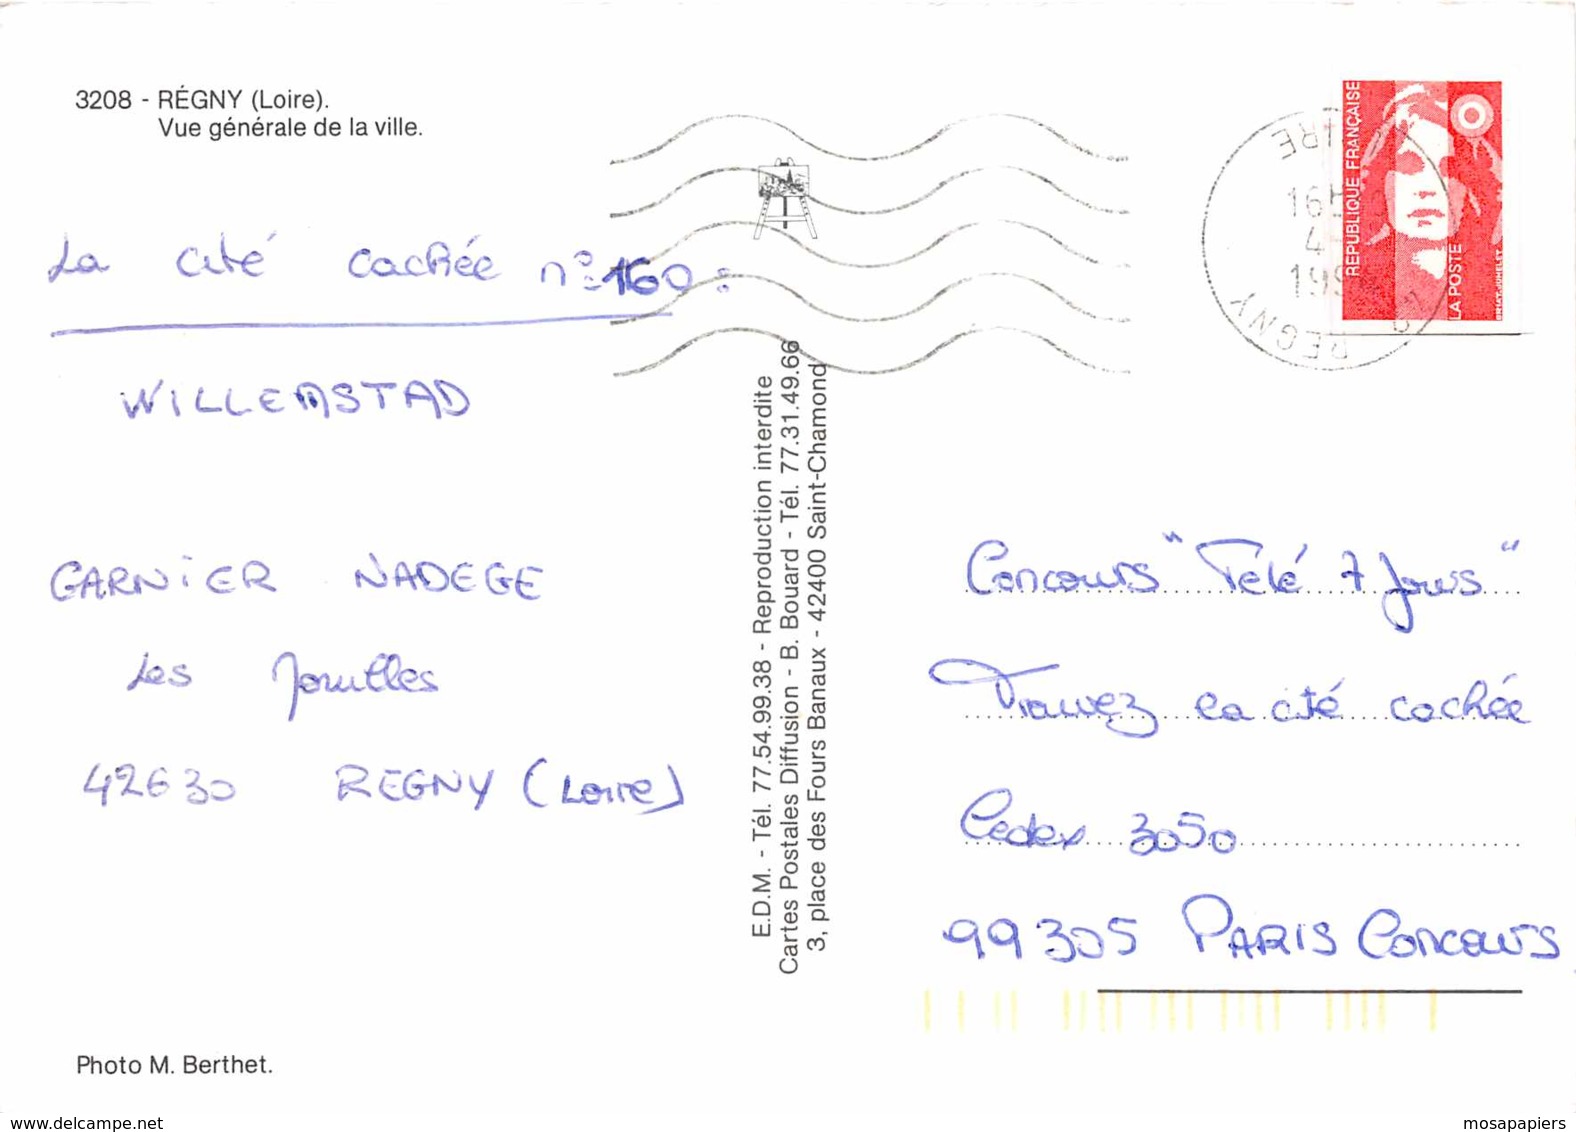 3208 - RÉGNY (Loire).
Vue générale de la ville.
La cité cachée n° 160 :
WILLEMSTAD
GARNIER NADEGE
Les
42630 REGNY (Loire)
Photo M. Berthet.
E.D.M. - Tél. 77.54.99.38 - Reproduction interdite
Cartes Postales Diffusion - B. Bouard - Tél. 77.31.49.66
3, place des Fours Banaux - 42400 Saint-Chamond
REGNY
REPUBLIQUE FRANÇAISE
LA POSTE
Concours "Télé 7 Jours"
Trouvez la cité cachée
Cedex 3050
99305 PARIS Concours
www.delcampe.net
mosapapiers